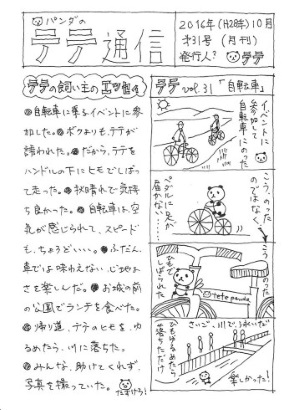 パンダの
テテ通信
2016年(H28年)10月
第31号(月刊)
発行人? テテ
テテの飼い主の
自転車に乗るイベントに参
加した。ボクよりも、テテが
誘われた。だから、テテを
ハンドルの下にヒモでしば
って走った。秋晴れで気持
ち良かった。自転車は、空
気が感じられて、スピード
も、ちょうどいい。ふだん、
車では味わえない、心地よ
さを楽しんだ。お城の前
の公園でランチを食べた。
帰り道、テテのヒモを、ゆ
るめたら、川に落ちた。
みんな、助けてくれず、
写真を撮っていた。
たすけろ!
テテ vol.31「自転車」
イベントに
参加して
自転車にのった
こう、のった
のではなく、
ペダルに足が
届かない……
こうのった
ひもで
しばられた
tete panda
さいご、川で
ひもゆるめたら
落ちただけ
楽しかった!